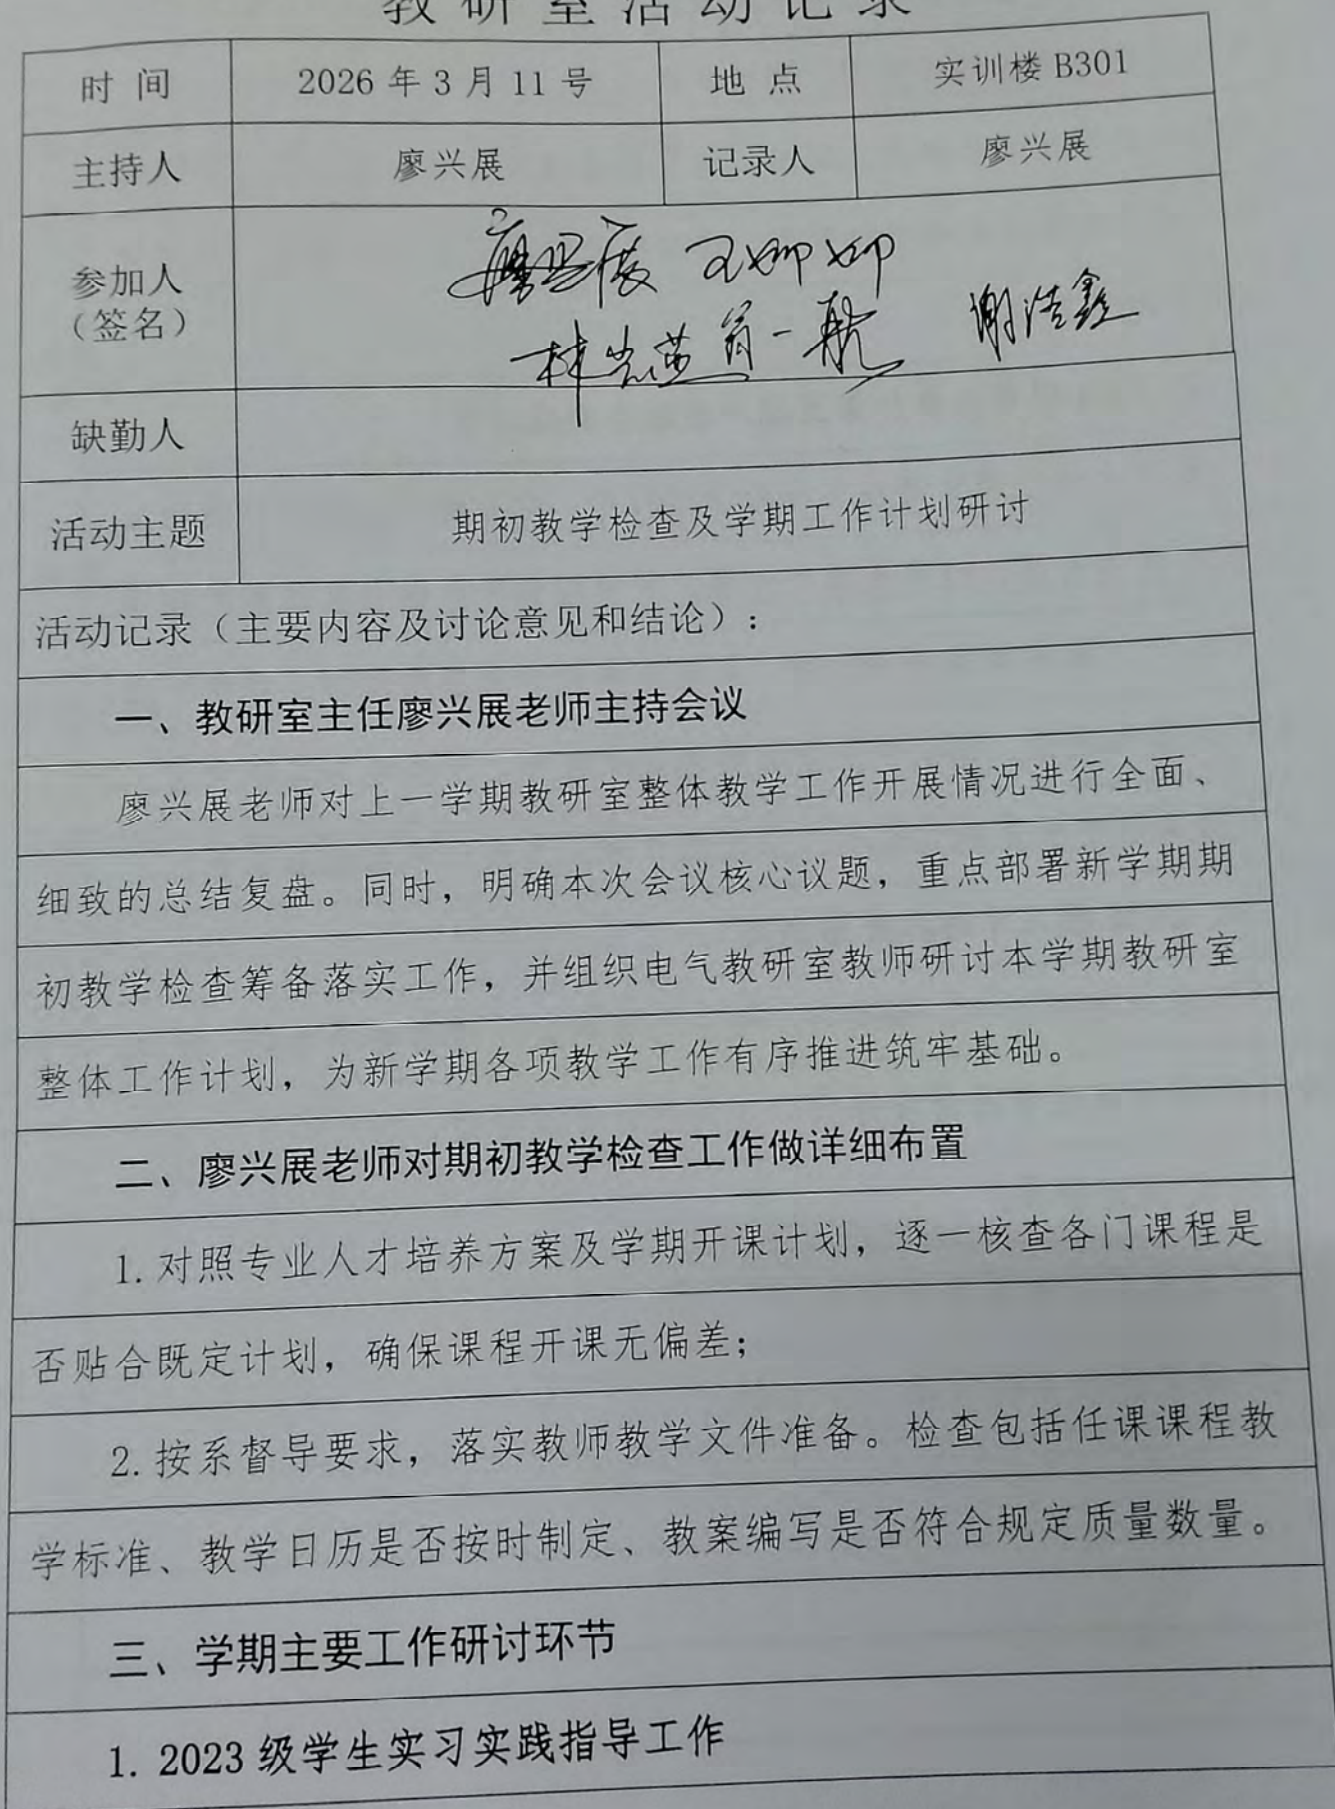 教研室活动记录
时 间 2026 年 3 月 11 号 地 点 实训楼 B301
主持人 廖兴展 记录人 廖兴展
参加人
（签名）
廖兴展 王卿卿
林 翁一航 谢浩鑫
缺勤人
活动主题 期初教学检查及学期工作计划研讨
活动记录（主要内容及讨论意见和结论）：
一、教研室主任廖兴展老师主持会议
廖兴展老师对上一学期教研室整体教学工作开展情况进行全面、
细致的总结复盘。同时，明确本次会议核心议题，重点部署新学期期
初教学检查筹备落实工作，并组织电气教研室教师研讨本学期教研室
整体工作计划，为新学期各项教学工作有序推进筑牢基础。
二、廖兴展老师对期初教学检查工作做详细布置
1. 对照专业人才培养方案及学期开课计划，逐一核查各门课程是
否贴合既定计划，确保课程开课无偏差；
2. 按系督导要求，落实教师教学文件准备。检查包括任课课程教
学标准、教学日历是否按时制定、教案编写是否符合规定质量数量。
三、学期主要工作研讨环节
1. 2023 级学生实习实践指导工作